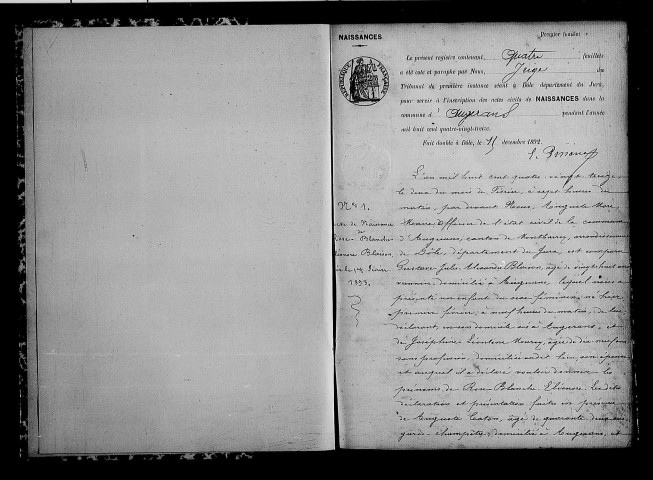 NAISSANCES
Premier feuillet
Le présent registre contenant Quatre feuillets
a été coté et paraphé par Nous, Juge du
Tribunal de première instance séant à Dole département du Jura,
pour servir à l'inscription des actes civils de NAISSANCES dans la
commune d'Augerans pendant l'année
mil huit cent quatre-vingt-treize.
Fait double à Dole, le 15 décembre 1892.
RÉPUBLIQUE FRANÇAISE
N° 1.
de Naissance
de
Rose Blanche
Blaison
1er février
1893.
L'an mil huit cent quatre-vingt treize
le deux du mois de Février, à sept heures du
matin, par devant Nous, Auguste
Maire Officier de l'état civil de la commune
d'Augerans, canton de Montbarrey, arrondissement
de Dôle, département du Jura, est comparu
Gustave Jules Blaison, âgé de vingt huit ans
domicilié à Augerans, lequel nous a
présenté un enfant du sexe féminin, né hier
premier février, à neuf heures du matin, de lui
déclarant, en son domicile sis à Augerans, et
de Joséphine Léontine âgée de dix neuf ans
sans profession, domiciliée audit lieu, son épouse
et auquel il a déclaré vouloir donner les
prénoms de Rose Blanche Les dites
déclaration et présentation faites en présence
de Auguste âgé de quarante
garde-champêtre, domicilié à Augerans, et